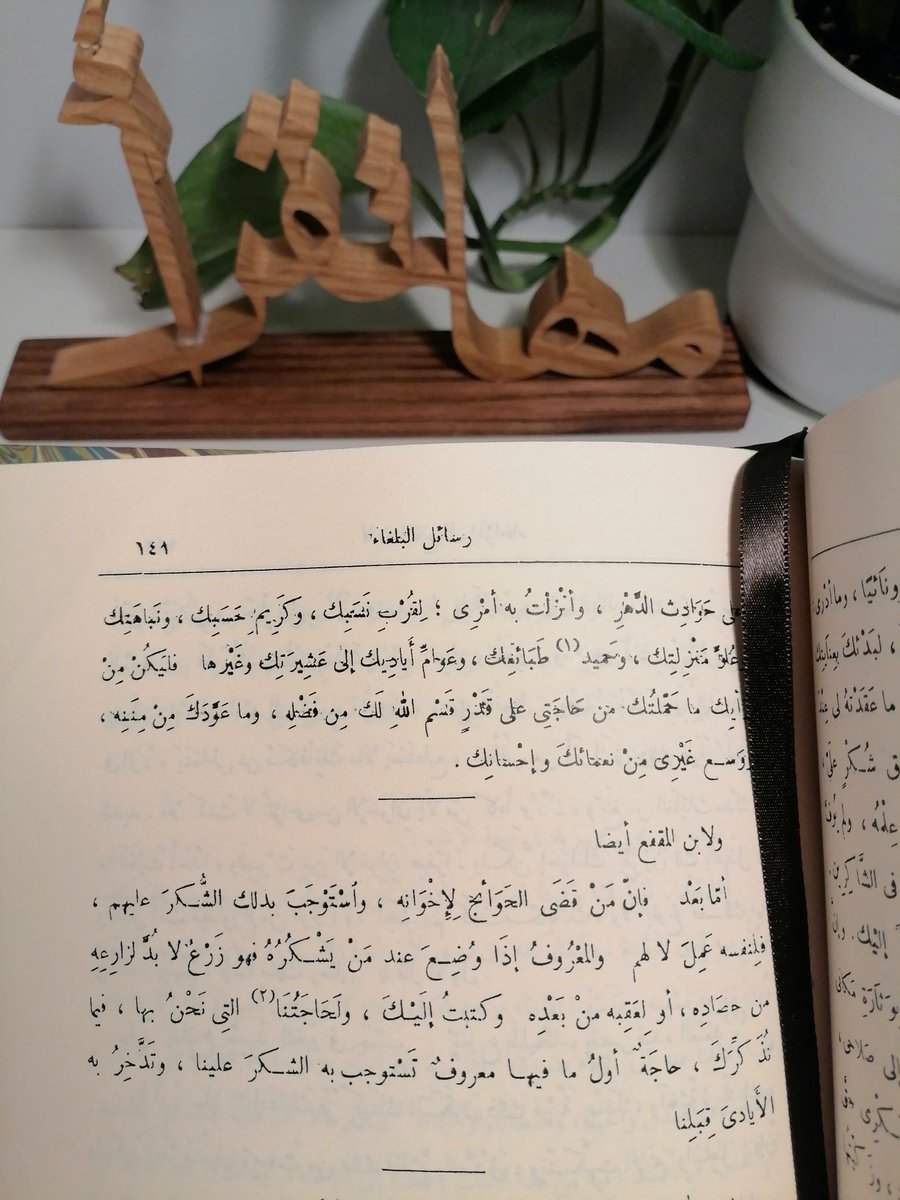 مها تقرأ
رسائل البلغاء ١٤١
حَوَادِث الدَّهْرِ ، وأنْزَلْتُ به أمْرِى ؛ لِقُرْبِ نَسَبِك ، وكَرِيمِ حَسَبِك ، ونَبَاهَتِك
مَنْزِلَتِك ، وحَمِيد (١) طَبَائعِك ، وعَوَامِّ أَيادِيك إلى عَشِيرَتِك وغَيْرِها فليَكُنْ مِنْ
رأيِك ما حَمّلتُك من حَاجَتِى على قَدْرِ قَسْمِ اللهِ لَكَ مِن فَضْلِه ، وما عَوَّدَكَ مِنْ مِنَنِه ،
ووَسِعَ غَيْرِى مِنْ نعمائكَ وإحْسانِك .
ولابن المقفع أيضا
أمّا بَعْدُ فإنّ مَنْ قَضَى الحَوَائِجَ لِإِخْوَانِه ، واُسْتَوْجَبَ بذلك الشُّكرَ عليهم ،
فلِنفسه عَمِلَ لا لهم والمَعْرُوفُ إذَا وُضِعَ عند مَنْ يَشْكُرُهُ فهو زَرْعٌ لا بُدَّ لزارِعِهِ
من حصَادِه ، أو لِعَقِبِه منْ بَعْدِه وكتبتُ إلَيْكَ ، ولَحَاجَتُنَا (٢) التِى نَحْنُ بها ، فيما
نُذَكِّرُكَ ، حاجَةٌ أولُ ما فيها معروفٌ تَسْتوجب به الشكرَ علينا ، وتَدَّخِرُ به
الأَيادىَ قِبَلِنا